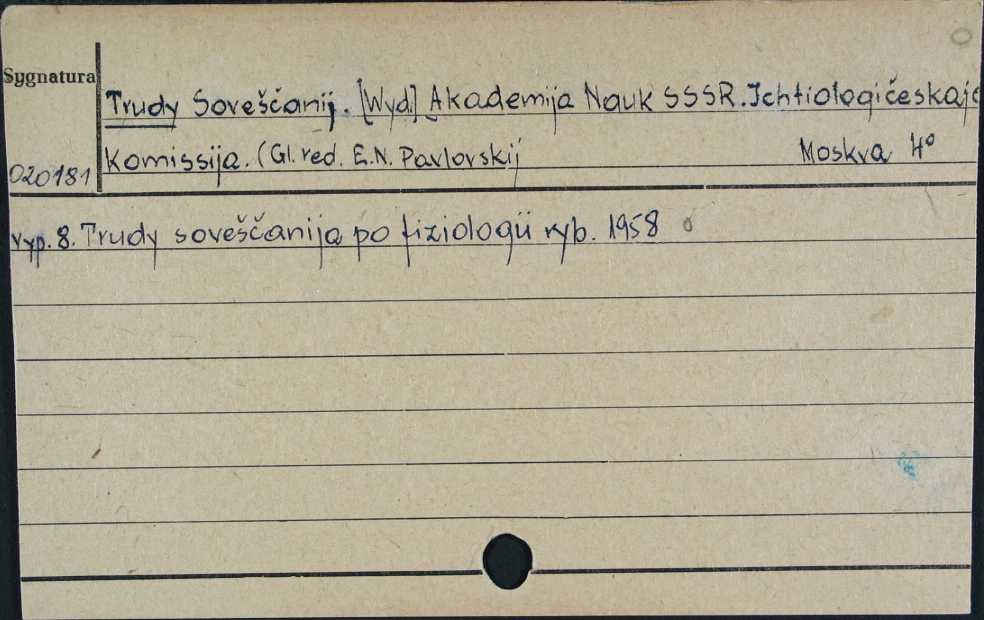 Sygnatura
Trudy Soveščanij. [Wyd.] Akademija Nauk SSSR. Ichtiologičeskaja
Komissija. (Gl. red. E.N. Pavlovskij
Moskva 4°
020181
Vyp. 8. Trudy soveščanija po fiziologii ryb. 1958